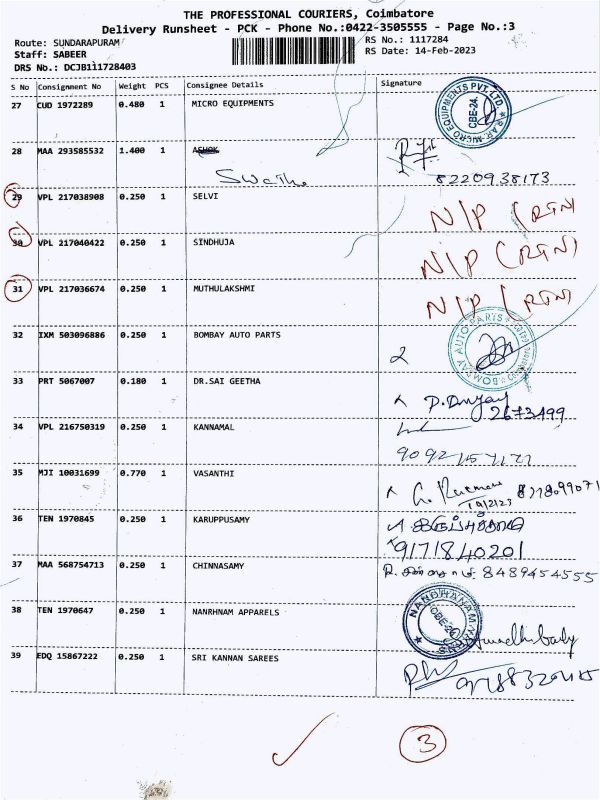 THE PROFESSIONAL COURIERS, Coimbatore
Delivery Runsheet - PCK - Phone No.:0422-3505555 - Page No.:3
Route: SUNDARAPURAM
Staff: SABEER
DRS No.: DCJB111728403
RS No.: 1117284
RS Date: 14-Feb-2023
S No Consignment No Weight PCS Consignee Details Signature
27 CUD 1972289 0.480 1 MICRO EQUIPMENTS
28 MAA 293585532 1.400 1 ASHOK
8220938173
29 VPL 217038908 0.250 1 SELVI N/P (RTN)
30 VPL 217040422 0.250 1 SINDHUJA N/P (RTN)
31 VPL 217036674 0.250 1 MUTHULAKSHMI N/P (RTN)
32 IXM 503096886 0.250 1 BOMBAY AUTO PARTS
BOMBAY AUTO PARTS
33 PRT 5067007 0.180 1 DR.SAI GEETHA
2673499
34 VPL 216750319 0.250 1 KANNAMAL
35 MJI 10031699 0.770 1 VASANTHI
36 TEN 1970845 0.250 1 KARUPPUSAMY
9171840201
37 MAA 568754713 0.250 1 CHINNASAMY 8489454555
38 TEN 1970647 0.250 1 NANRHNAM APPARELS
39 EDQ 15867222 0.250 1 SRI KANNAN SAREES
3